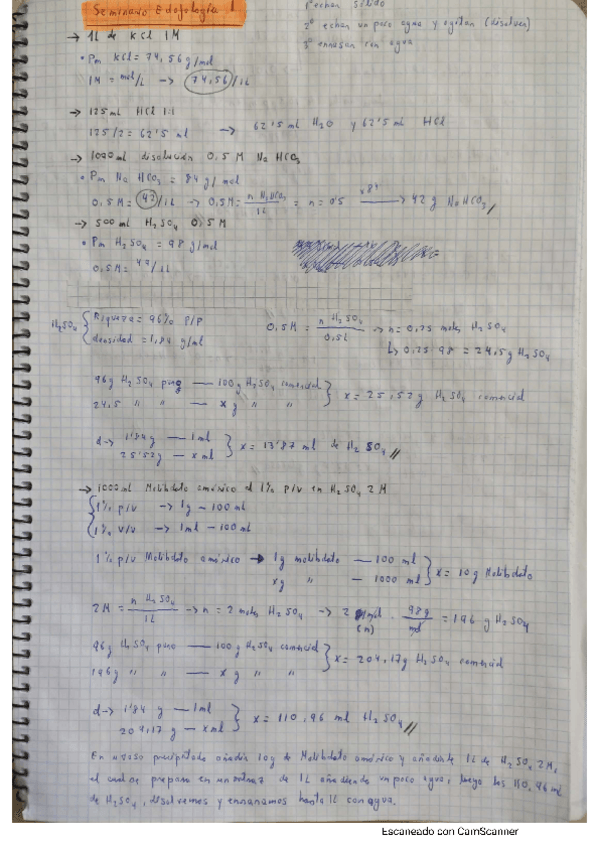 Seminario Edafología 1
1º echar sólido
2º echar un poco agua y agitar (disolver)
3º enrasar con agua
→ 1L de KCl 1M
• Pm KCl = 74,56 g/mol
1M = mol/L → 74,56/1L
→ 125 ml HCl 1:1
125/2 = 62'5 ml → 62'5 ml H₂O y 62'5 ml HCl
→ 1000 ml disolución 0,5 M NaHCO₃
• Pm NaHCO₃ = 84 g/mol
0,5M = 42/1L → 0,5M = n NaHCO₃/1L = n = 0'5 ×84 → 42 g NaHCO₃//
→ 500 ml H₂SO₄ 0,5 M
• Pm H₂SO₄ = 98 g/mol
0,5M = 49/1L
H₂SO₄ { Riqueza = 96% P/P
densidad = 1,84 g/ml
0,5M = n H₂SO₄/0,5L → n = 0,25 moles H₂SO₄
↳ 0,25·98 = 24,5 g H₂SO₄
96g H₂SO₄ puro — 100g H₂SO₄ comercial
24,5 " " — x g " " } x = 25,52g H₂SO₄ comercial
d → 1'84g — 1ml
25'52g — x ml } x = 13'87 ml de H₂SO₄//
→ 1000ml Molibdato amónico al 1% p/v en H₂SO₄ 2M
{ 1% p/v → 1g — 100ml
1% v/v → 1ml — 100ml
1% p/v Molibdato amónico → 1g molibdato — 100 ml
xg " — 1000 ml } x = 10g Molibdato
2M = n H₂SO₄/1L → n = 2 moles H₂SO₄ → 2 mol (n) · 98g/mol = 196 g H₂SO₄
96g H₂SO₄ puro — 100g H₂SO₄ comercial
196g " " — x g " " } x = 204,17g H₂SO₄ comercial
d → 1'84 g — 1ml
204,17 g — x ml } x = 110,96 ml H₂SO₄//
En un vaso precipitado añadir 10g de Molibdato amónico y añadirle 1L de H₂SO₄ 2M,
el cual se prepara en un matraz de 1L añadiendo un poco agua, luego los 110,96 ml
de H₂SO₄, disolvemos y enrasamos hasta 1L con agua.
Escaneado con CamScanner